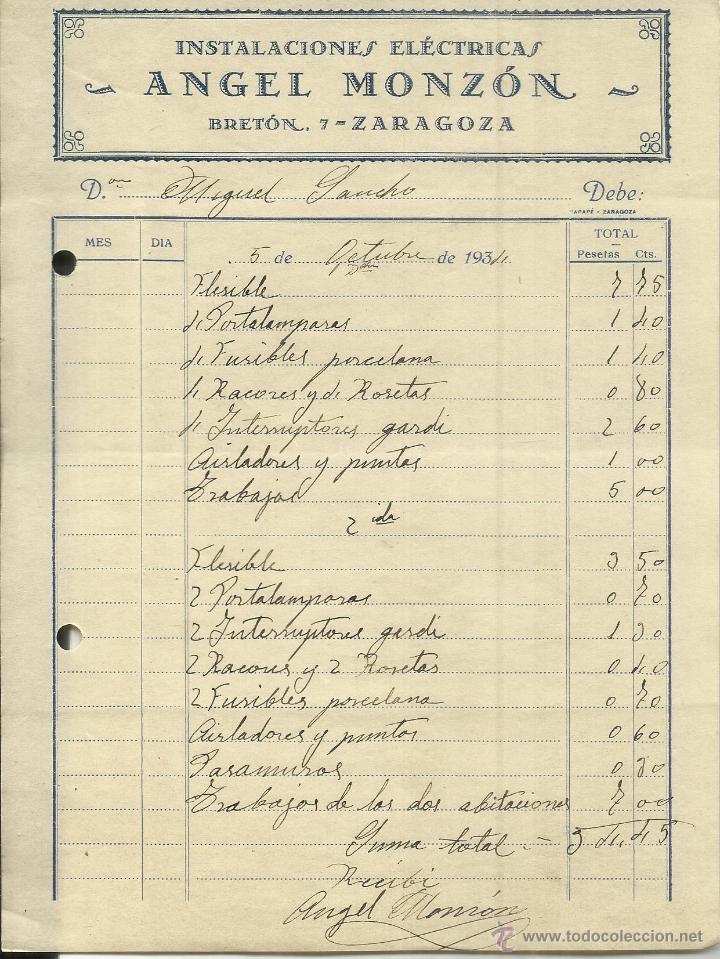 INSTALACIONES ELÉCTRICAS
ANGEL MONZÓN
BRETÓN, 7 - ZARAGOZA
D.on Miguel Sancho Debe:
TAPAPÉ - ZARAGOZA
MES DIA TOTAL
5 de Octubre de 1934 Pesetas Cts.
Flesible 7 75
4 Portalamparas 1 40
4 Fusibles porcelana 1 40
4 Racores y 4 Rosetas 0 80
4 Interruptores gardi 2 60
Aisladores y puntas 1 00
Trabajos 5 00
2 ida
Flesible 3 50
2 Portalamparas 0 70
2 Interruptores gardi 1 30
2 Racores y 2 Rosetas 0 40
2 Fusibles porcelana 0 70
Aisladores y puntas 0 60
Pasamuros 0 30
Trabajos de las dos abitaciones 7 00
Suma total = 34,45
Recibi
Angel Monzón
www.todocoleccion.net